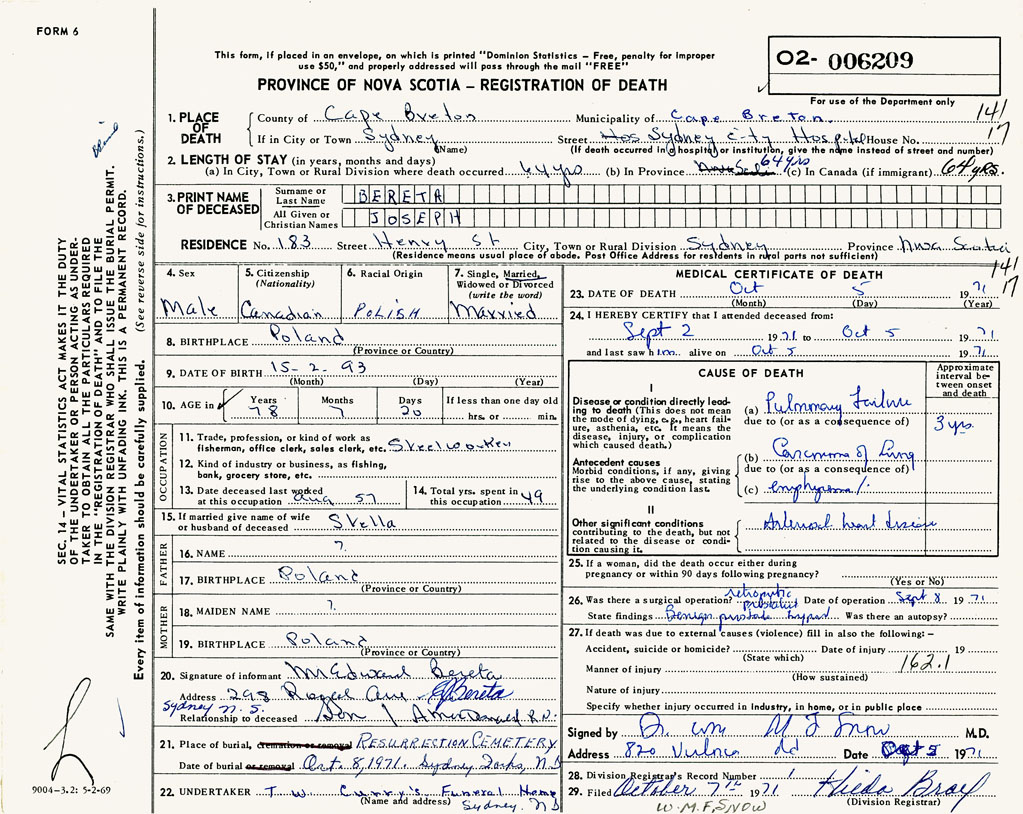 FORM 6
This form, if placed in an envelope, on which is printed "Dominion Statistics – Free, penalty for improper
use $50," and properly addressed will pass through the mail "FREE"
PROVINCE OF NOVA SCOTIA – REGISTRATION OF DEATH
O2- 006209
For use of the Department only
141
17
1. PLACE OF DEATH
County of Cape Breton Municipality of Cape Breton.
If in City or Town Sydney (Name) Street Hos Sydney City Hospital House No.
(If death occurred in hospital or institution, give the name instead of street and number)
2. LENGTH OF STAY (in years, months and days)
(a) In City, Town or Rural Division where death occurred 64 yrs (b) In Province 64 yrs (c) In Canada (if immigrant) 64 yrs.
3. PRINT NAME OF DECEASED
Surname or Last Name BERETA
All Given or Christian Names JOSEPH
RESIDENCE No. 183 Street Henry St City, Town or Rural Division Sydney Province Nova Scotia
(Residence means usual place of abode. Post Office Address for residents in rural parts not sufficient)
4. Sex Male
5. Citizenship (Nationality) Canadian
6. Racial Origin POLISH
7. Single, Married, Widowed or Divorced (write the word) Married
8. BIRTHPLACE Poland
(Province or Country)
9. DATE OF BIRTH 15-2-93
(Month) (Day) (Year)
10. AGE in Years 78 Months 7 Days 20 If less than one day old
hrs. or min.
OCCUPATION
11. Trade, profession, or kind of work as
fisherman, office clerk, sales clerk, etc. Steelworker
12. Kind of industry or business, as fishing,
bank, grocery store, etc.
13. Date deceased last worked
at this occupation Aug 57
14. Total yrs. spent in
this occupation 49
15. If married give name of wife
or husband of deceased Stella
FATHER
16. NAME ?
17. BIRTHPLACE Poland
(Province or Country)
MOTHER
18. MAIDEN NAME ?
19. BIRTHPLACE Poland
(Province or Country)
20. Signature of informant Mr Edward Bereta
Address 298 Royal Ave E Bereta
Sydney N.S.
Relationship to deceased Son R.N.
21. Place of burial, cremation or removal RESURRECTION CEMETERY
Date of burial or removal Oct. 8, 1971. Sydney Forks, N.S
22. UNDERTAKER T. W. Curry's Funeral Home
(Name and address) Sydney, NS
MEDICAL CERTIFICATE OF DEATH
141
17
23. DATE OF DEATH Oct 5 1971
(Month) (Day) (Year)
24. I HEREBY CERTIFY that I attended deceased from:
Sept 2 1971 to Oct 5 1971
and last saw him alive on Oct 5 1971
CAUSE OF DEATH
Approximate interval between onset and death
I
Disease or condition directly leading to death (This does not mean the mode of dying, e.g., heart failure, asthenia, etc. It means the disease, injury, or complication which caused death.)
(a) Pulmonary Failure 3 yrs
due to (or as a consequence of)
Antecedent causes
Morbid conditions, if any, giving rise to the above cause, stating the underlying condition last.
(b) Carcinoma of Lung
due to (or as a consequence of)
(c) emphysema
II
Other significant conditions contributing to the death, but not related to the disease or condition causing it.
Arterioscl heart disease
25. If a woman, did the death occur either during
pregnancy or within 90 days following pregnancy?
(Yes or No)
26. Was there a surgical operation? retropubic Date of operation Sept 8 1971
State findings Benign prostate hypert Was there an autopsy?
27. If death was due to external causes (violence) fill in also the following: –
Accident, suicide or homicide? Date of injury 19
(State which) 162.1
Manner of injury
(How sustained)
Nature of injury
Specify whether injury occurred in industry, in home, or in public place
Signed by Dr. Wm M F Snow M.D.
Address Date Oct 5 1971
28. Division Registrar's Record Number 1
29. Filed October 7th 1971 Hilda
(Division Registrar)
W.M.F. SNOW
SEC. 14 – VITAL STATISTICS ACT MAKES IT THE DUTY
OF THE UNDERTAKER OR PERSON ACTING AS UNDER-
TAKER TO OBTAIN ALL THE PARTICULARS REQUIRED
IN THE "REGISTRATION OF DEATH" AND TO FILE THE
SAME WITH THE DIVISION REGISTRAR WHO SHALL ISSUE THE BURIAL PERMIT.
WRITE PLAINLY WITH UNFADING INK. THIS IS A PERMANENT RECORD.
Every item of information should be carefully supplied. (See reverse side for instructions.)
9004-3.2: 5-2-69